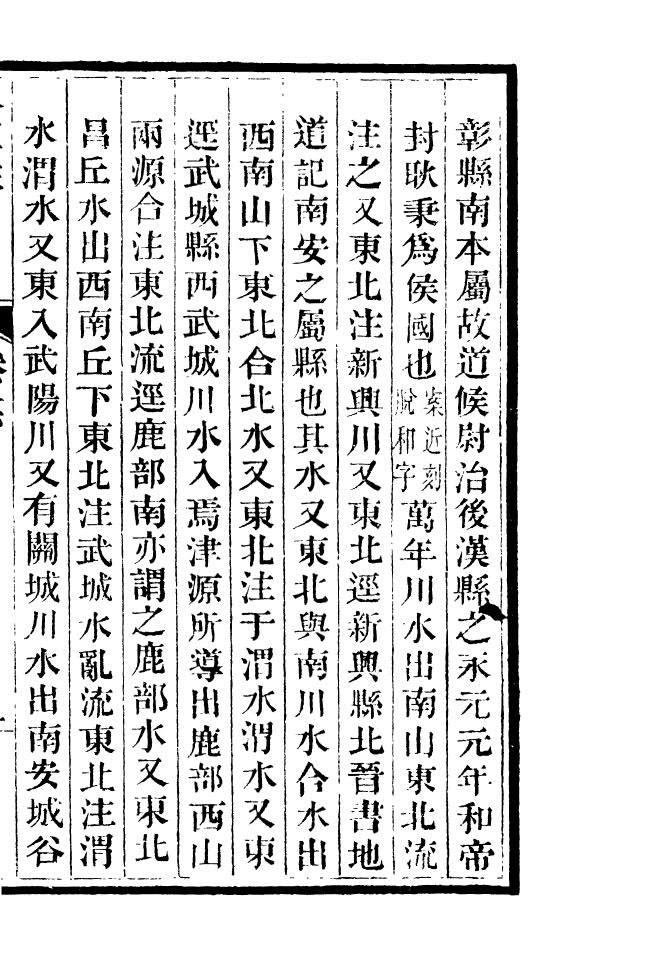 彰縣南本屬故道候尉治後漢縣之永元元年和帝
封耿秉爲侯國也案近刻脫和字萬年川水出南山東北流
注之又東北注新興川又東北逕新興縣北晉書地
道記南安之屬縣也其水又東北與南川水合水出
西南山下東北合北水又東北注于渭水渭水又東
逕武城縣西武城川水入焉津源所導出鹿部西山
兩源合注東北流逕鹿部南亦謂之鹿部水又東北
昌丘水出西南丘下東北注武城水亂流東北注渭
水渭水又東入武陽川又有關城川水出南安城谷